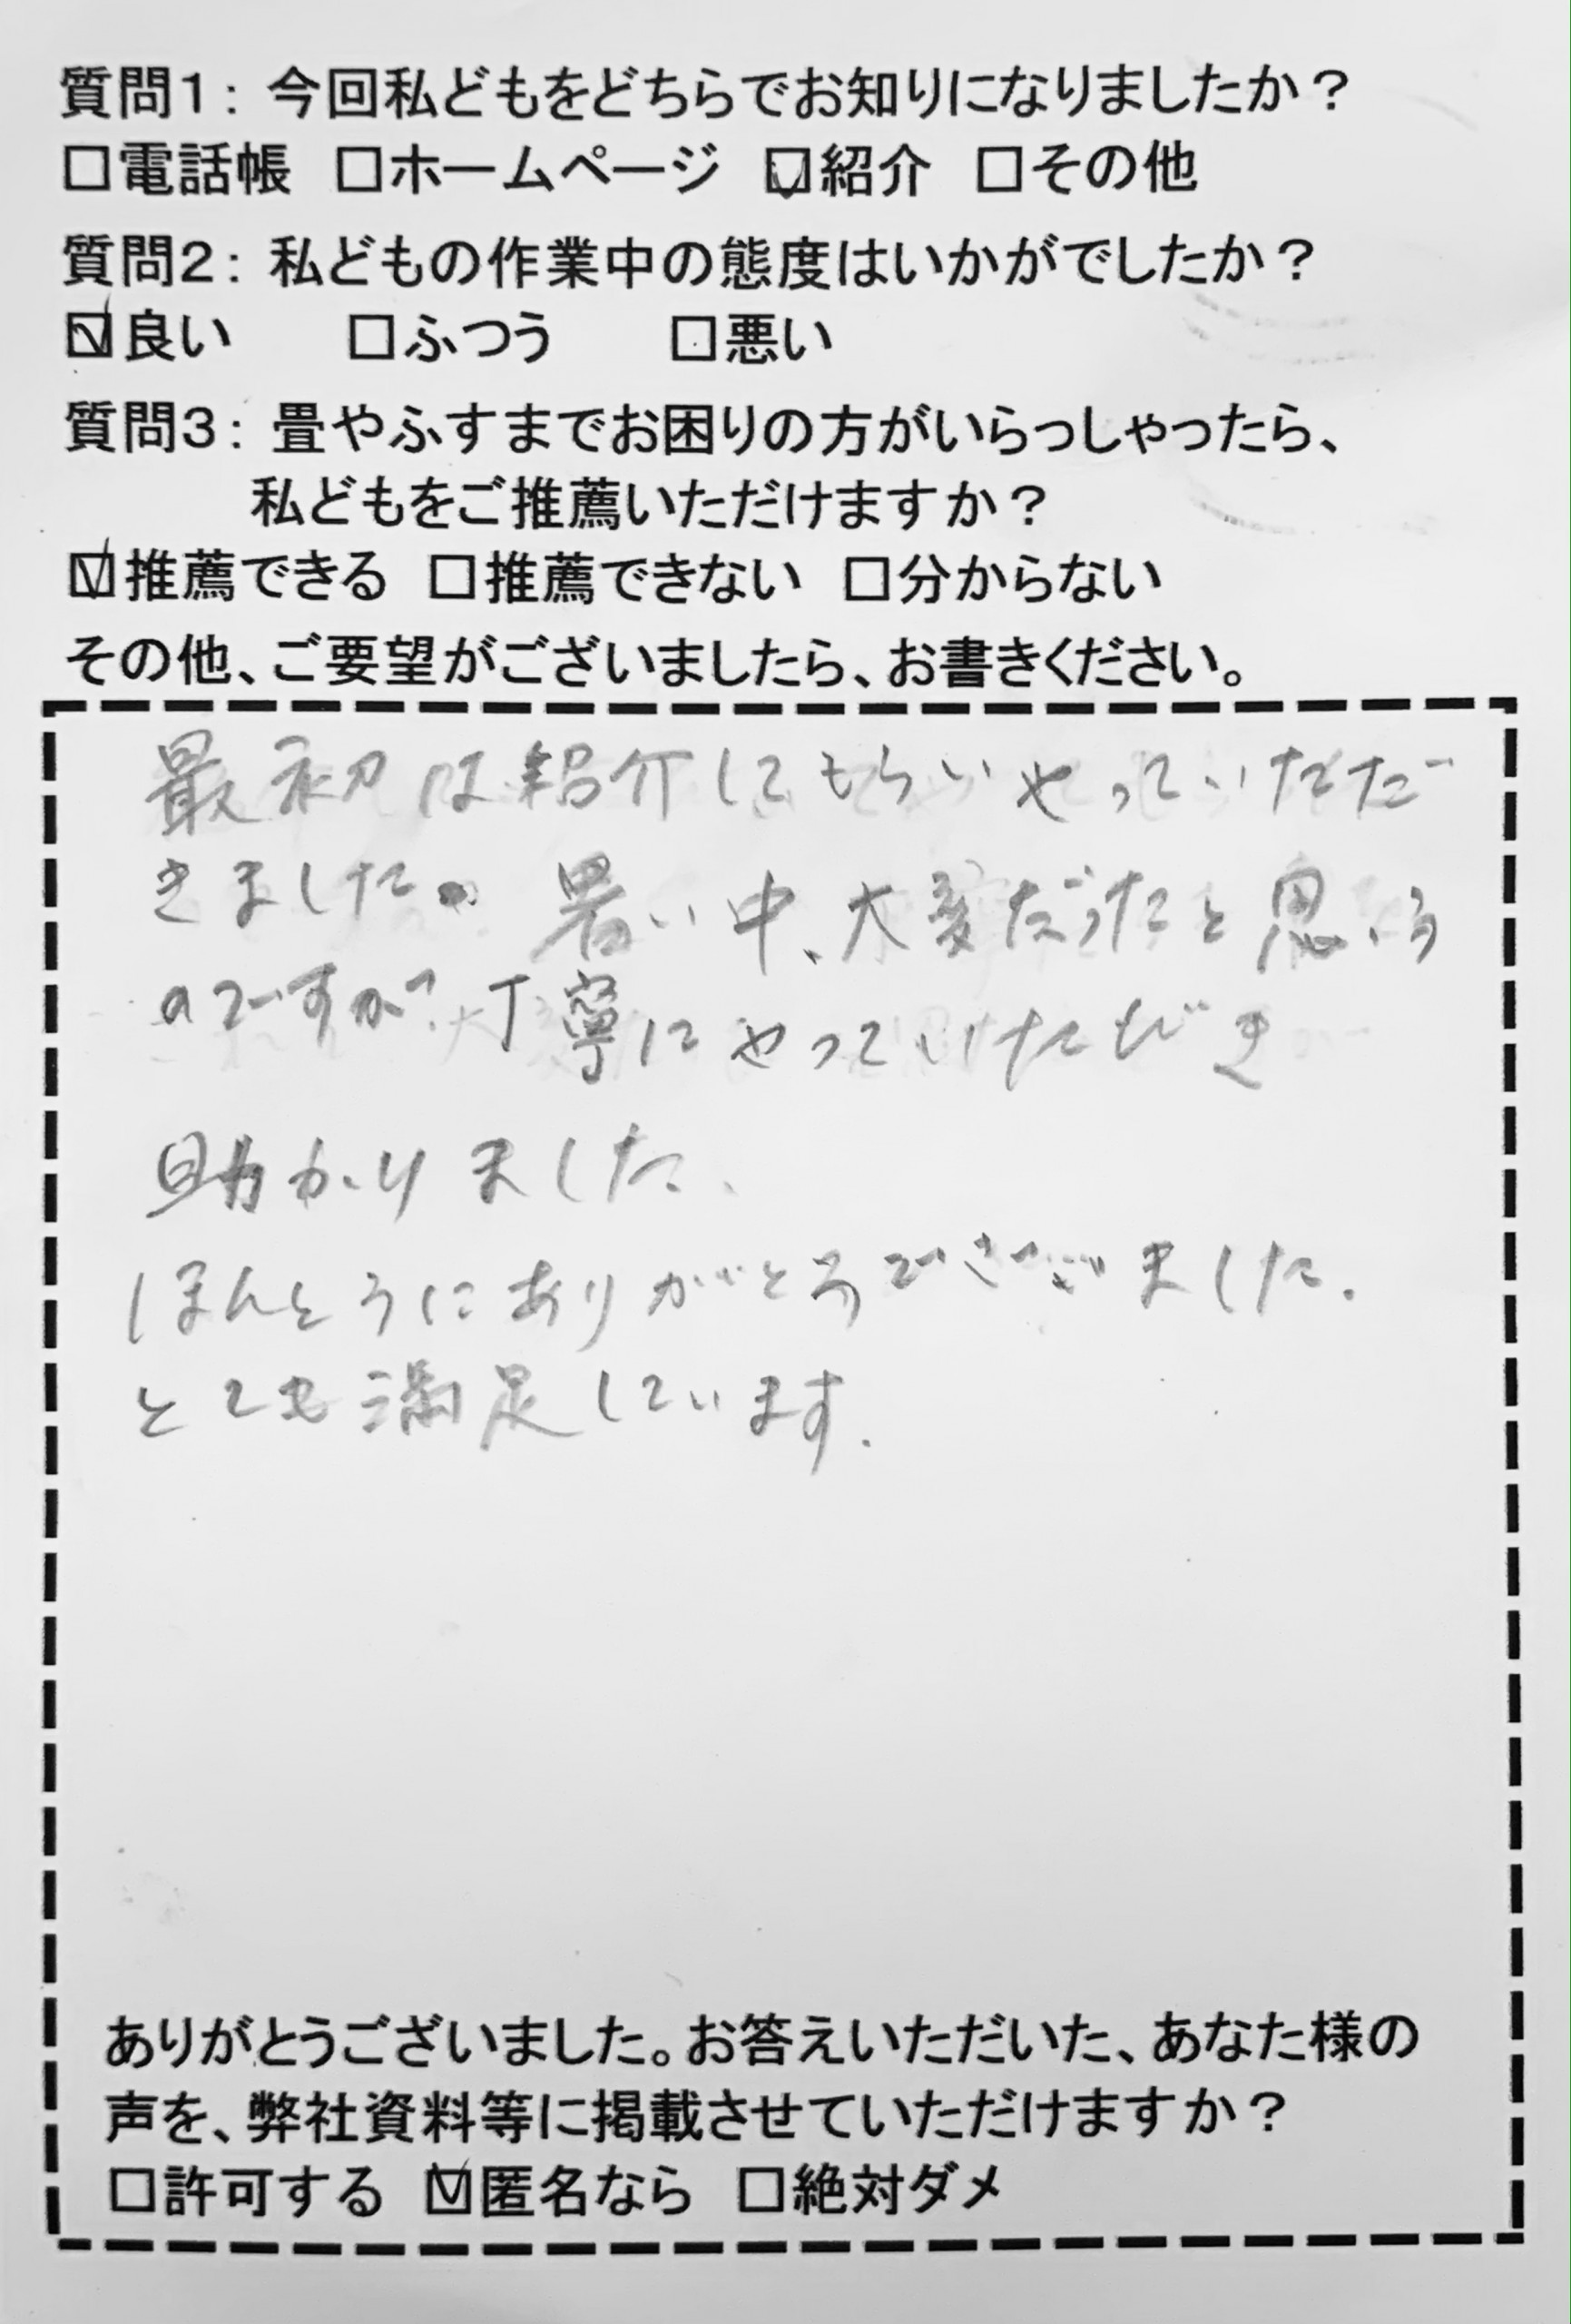 質問1：今回私どもをどちらでお知りになりましたか？
□電話帳 □ホームページ ☑紹介 □その他
質問2：私どもの作業中の態度はいかがでしたか？
☑良い □ふつう □悪い
質問3：畳やふすまでお困りの方がいらっしゃったら、
私どもをご推薦いただけますか？
☑推薦できる □推薦できない □分からない
その他、ご要望がございましたら、お書きください。
最初は紹介してもらいやっていただ
きました。暑い中、大変だったと思う
のですが、丁寧にやっていただき
助かりました、
ほんとうにありがとうございました.
とても満足しています.
ありがとうございました。お答えいただいた、あなた様の
声を、弊社資料等に掲載させていただけますか？
□許可する ☑匿名なら □絶対ダメ